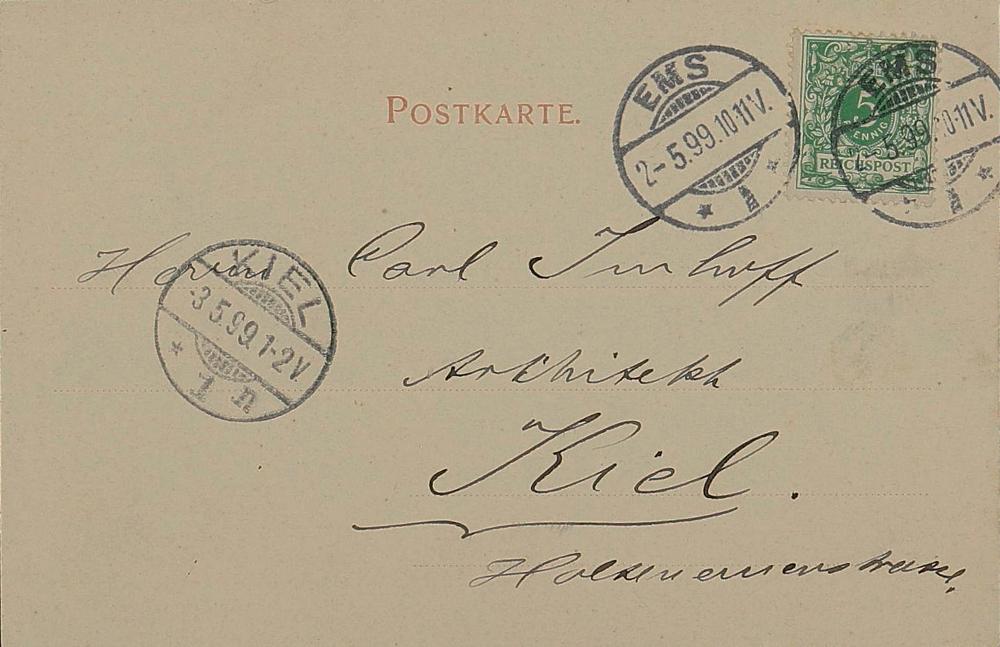 POSTKARTE.
EMS
2-5.99.10-11V.
1
EMS
5.99.10-11V.
1
5
PFENNIG
REICHSPOST
Herrn Carl Imhoff
KIEL
-3.5.99.1-2V.
1 n.
Arkhitekt
Kiel.